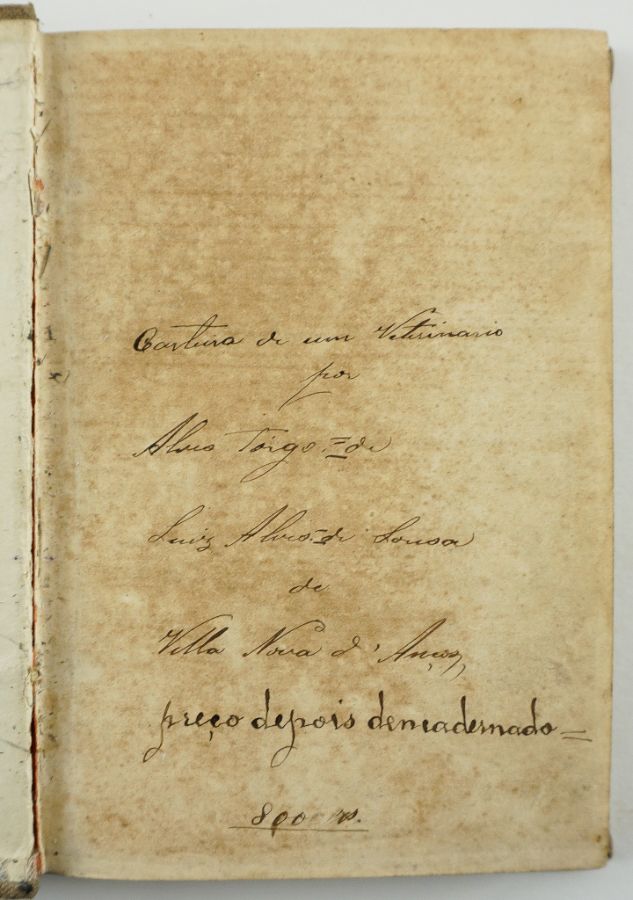 Carteira de um Veterinario
por
Alves Torgo = de
Luiz Alves = de Sousa
de
Villa Nova d'Anços,
preço depois dencadernado =
800 rs.